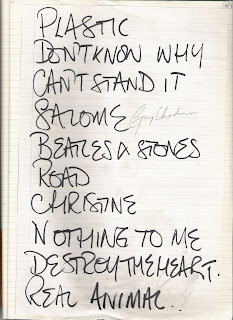 PLASTIC
DON'T KNOW WHY
CAN'T STAND IT
SALOME
BEATLES & STONES
ROAD
CHRISTINE
NOTHING TO ME
DESTROY THE HEART.
REAL ANIMAL.